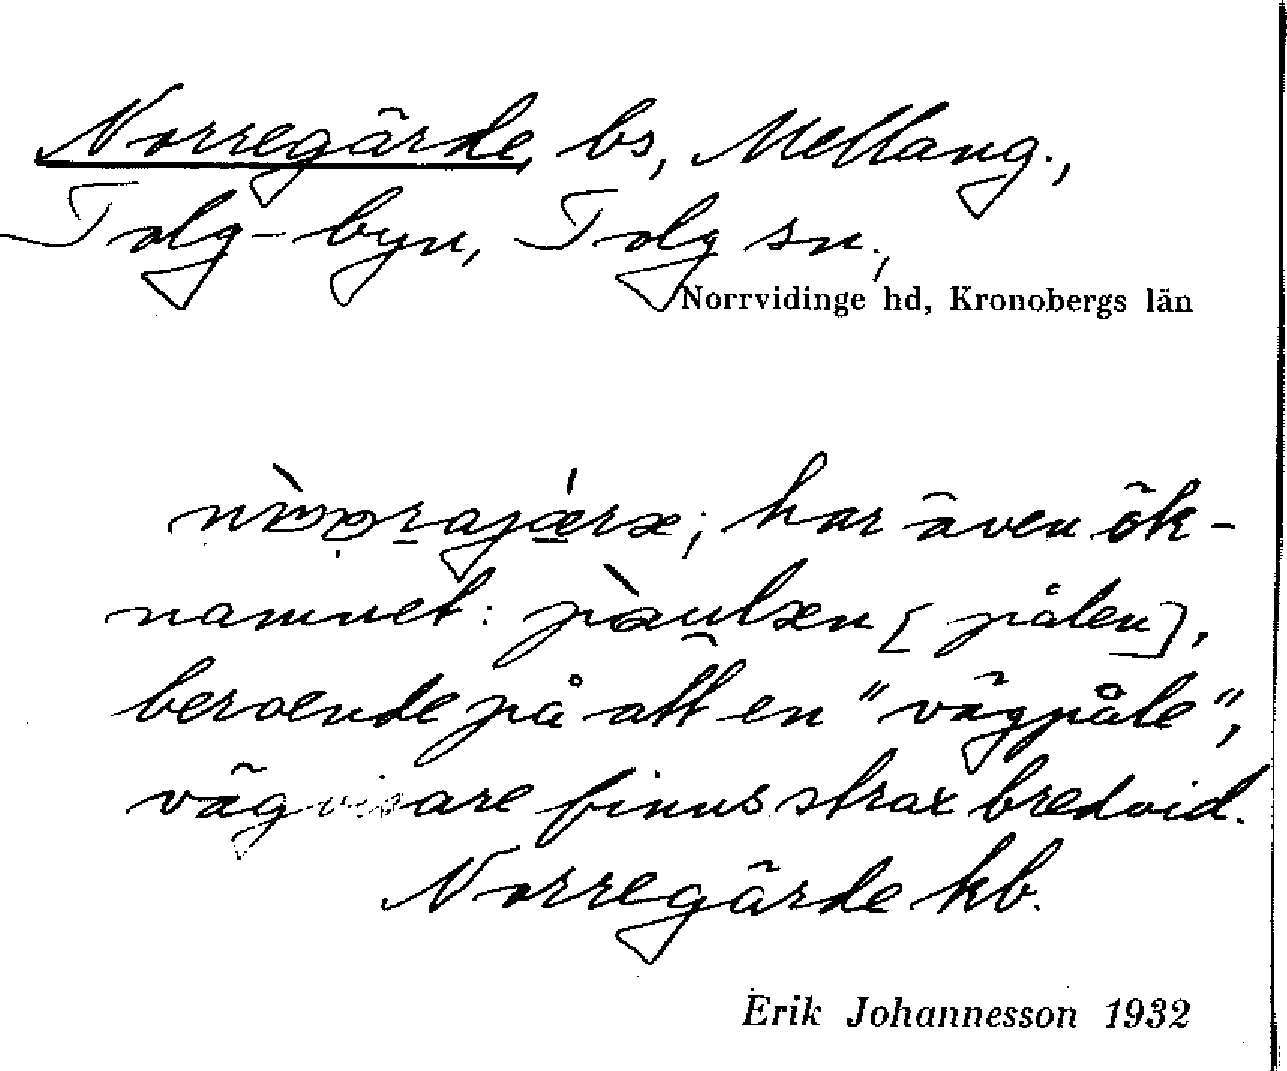 Norregärde, bs, Mellang.,
Tolg-byn, Tolg sn.,
Norrvidinge hd, Kronobergs län
; har även ök-
namnet: [pålen],
beroende på att en "vägpåle",
vägvisare finns strax bredvid.
Norregärde kb.
Erik Johannesson 1932